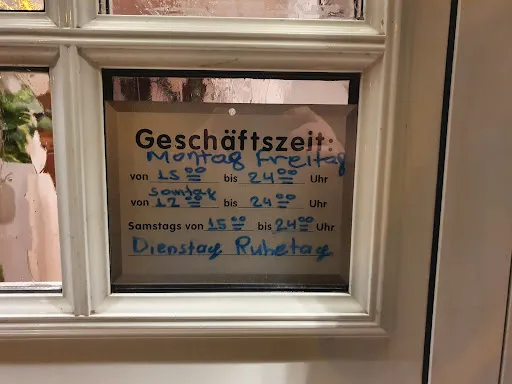 Geschäftszeit:
Montag Freitag
von 15 00 bis 24 00 Uhr
Sontag
von 12 00 bis 24 00
Samstags von 15 00 bis 24 00 Uhr
Dienstag Ruhetag